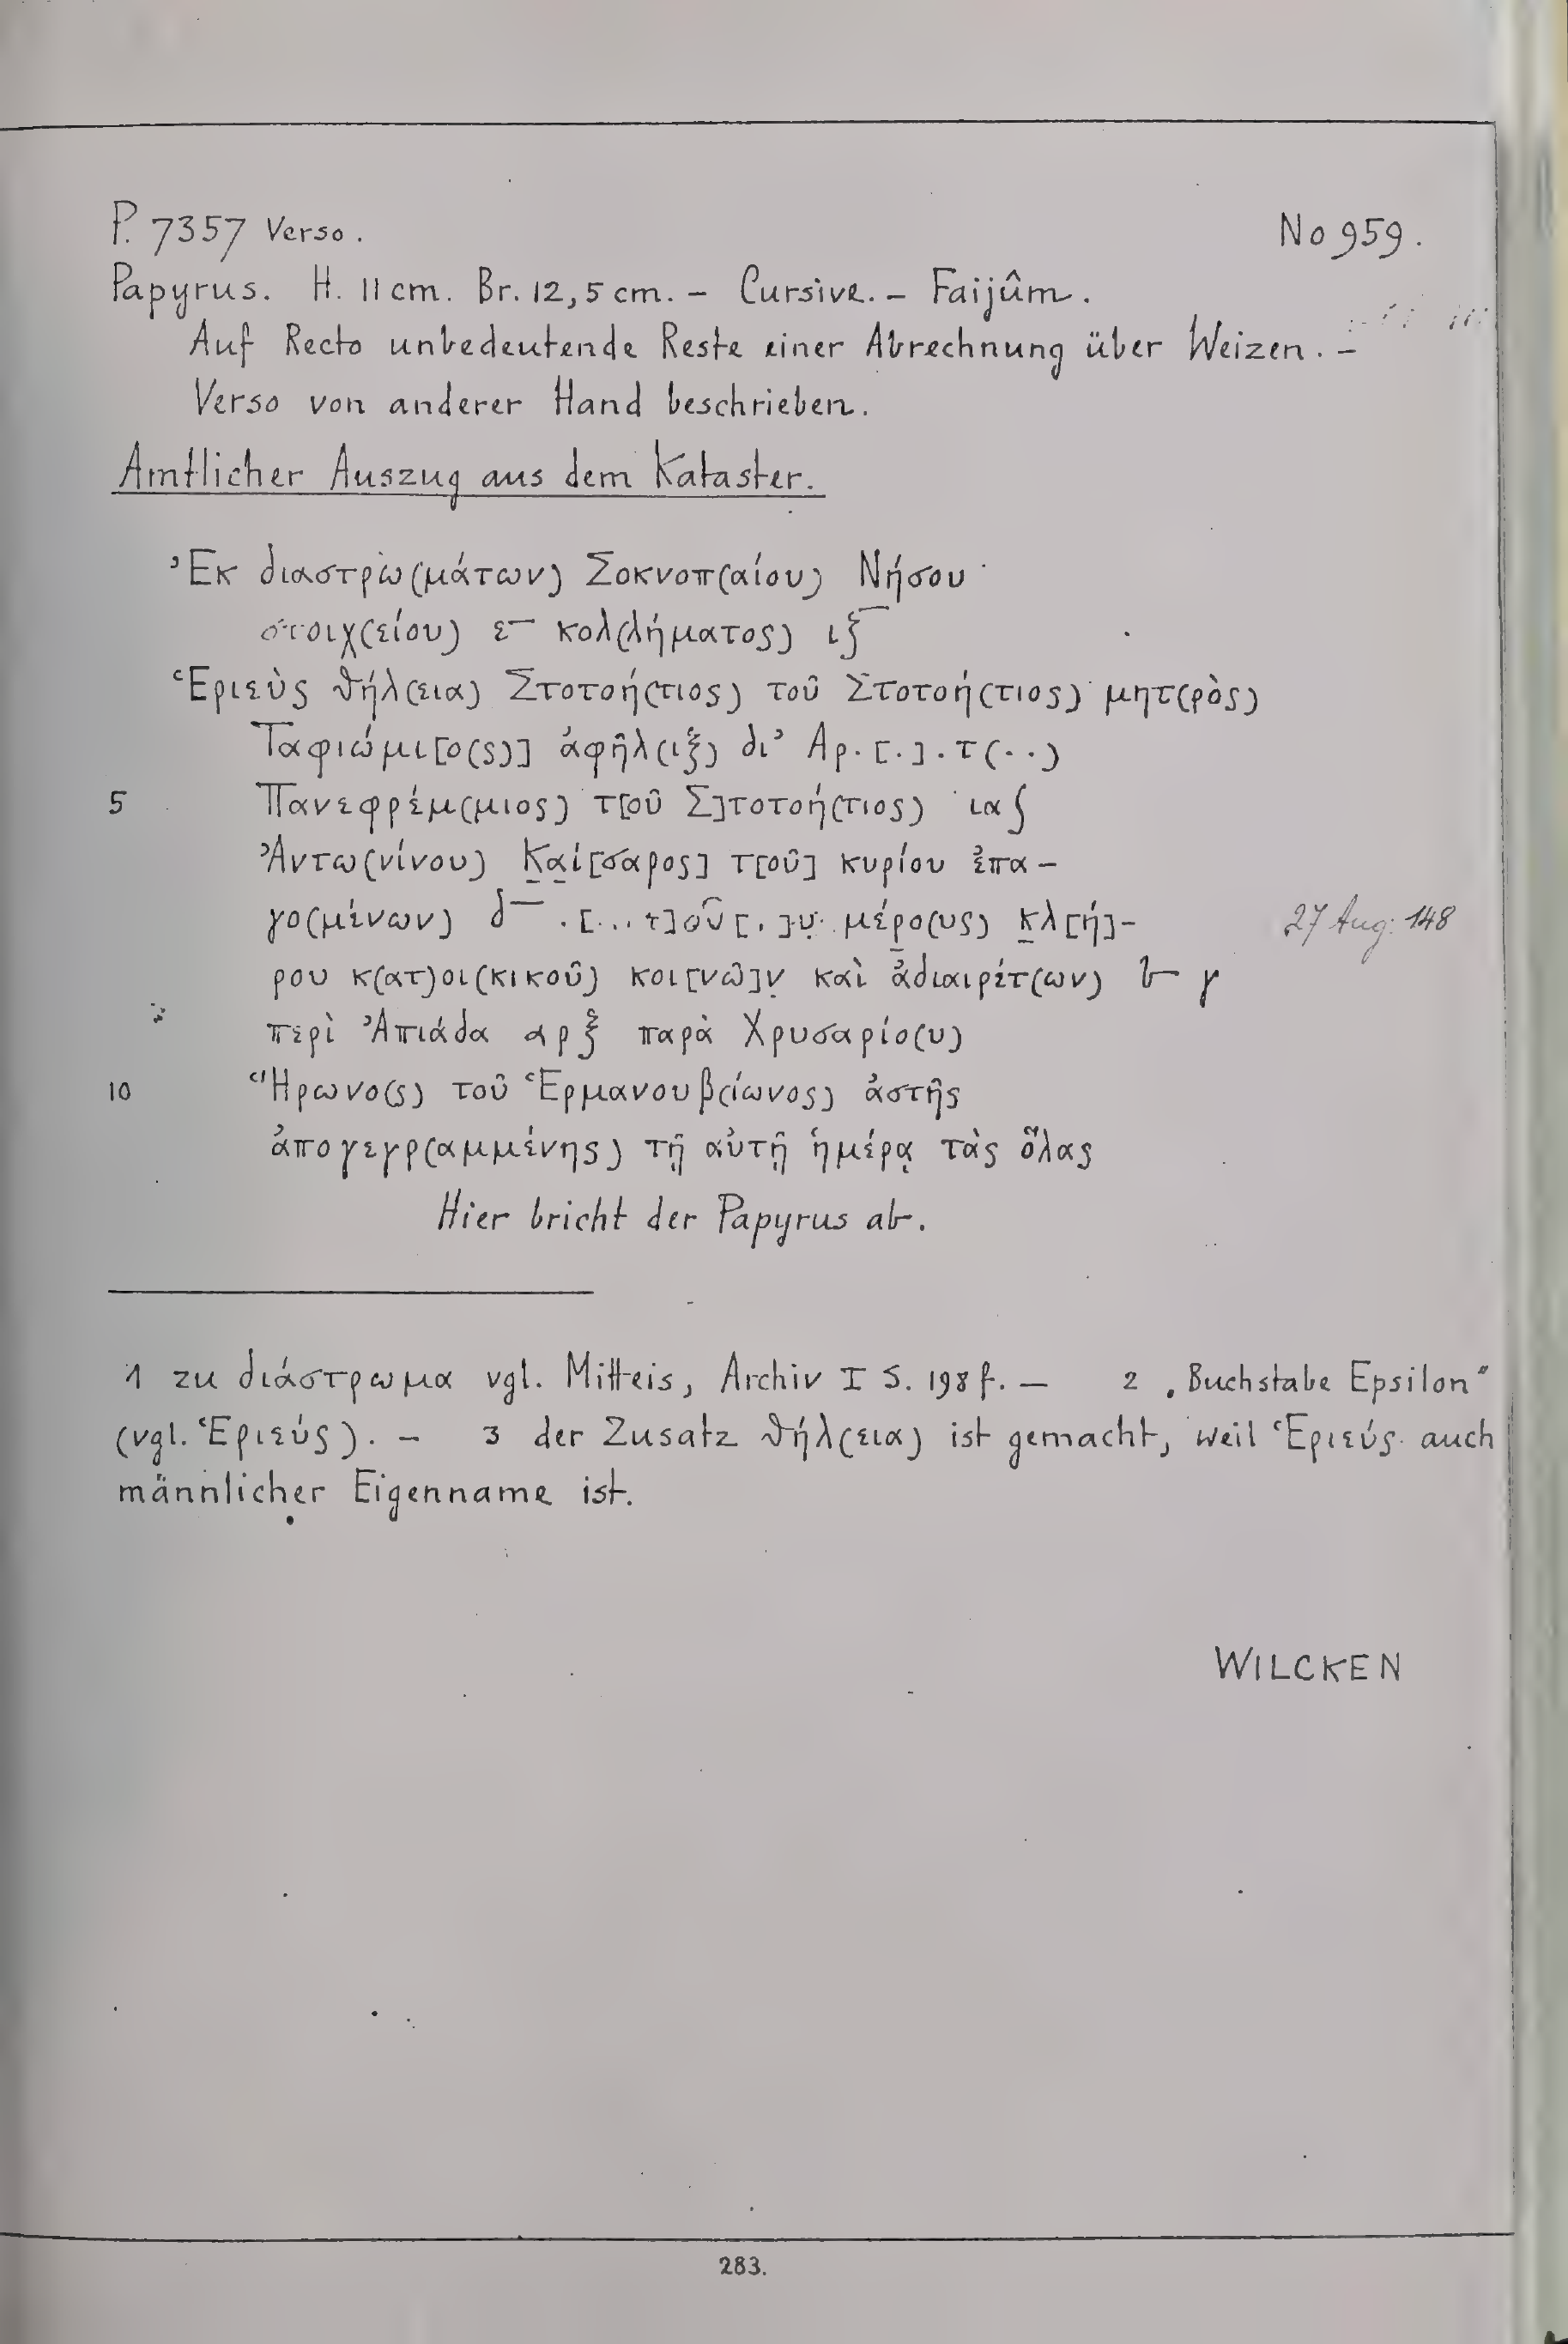 P. 7357 Verso. No 959.
Papyrus. H. 11 cm. Br. 12,5 cm. – Cursive. – Faijûm.
Auf Recto unbedeutende Reste einer Abrechnung über Weizen. –
Verso von anderer Hand beschrieben.
Amtlicher Auszug aus dem Kataster.
Ἐκ διαστρω(μάτων) Σοκνοπ(αίου) Νήσου
στοιχ(είου) ε̅ κολ(λήματος) ιξ̅
Ἑριεὺς θήλ(εια) Στοτοή(τιος) τοῦ Στοτοή(τιος) μητ(ρὸς)
Ταφιώμι[ο(ς)] ἀφῆλ(ιξ) δι’ Αρ.[.].τ(..)
5 Πανεφρέμ(μιος) τ[οῦ Σ]τοτοή(τιος) ια ʃ
Ἀντω(νίνου) Κ̲α̲ί[σαρος] τ[οῦ] κυρίου ἐπα-
γο(μένων) δ̅ .[...τ]οῦ[.]υ̣ μέρο(υς) κ̲λ[ή]- 27 Aug: 148
ρου κ(ατ)οι(κικοῦ) κοι[νῶ]ν̣ καὶ ἀδιαιρέτ(ων) 𐅹 γ
περὶ Ἀπιάδα αρξ παρὰ Χρυσαρίο(υ)
10 Ἥρωνο(ς) τοῦ Ἑρμανουβ(ίωνος) ἀστῆς
ἀπογεγρ(αμμένης) τῇ αὐτῇ ἡμέρᾳ τὰς ὅλας
Hier bricht der Papyrus ab.
1 zu διάστρωμα vgl. Mitteis, Archiv I S. 198 f. – 2 „Buchstabe Epsilon"
(vgl. Ἑριεύς). – 3 der Zusatz θήλ(εια) ist gemacht, weil Ἑριεύς auch
männlicher Eigenname ist.
WILCKEN
283.